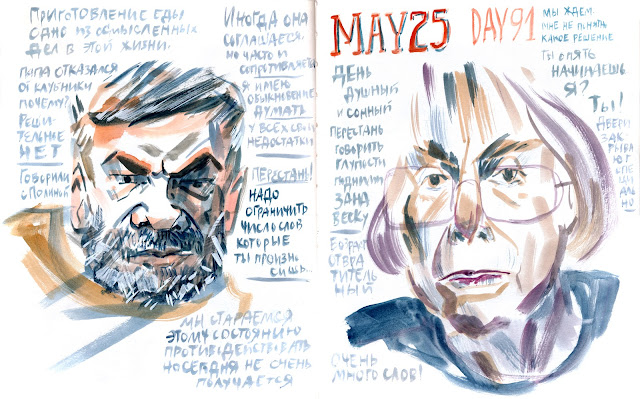 ПРИГОТОВЛЕНИЕ ЕДЫ
ОДНО ИЗ ОСМЫСЛЕННЫХ
ДЕЛ В ЭТОЙ ЖИЗНИ.
ПАПА ОТКАЗАЛСЯ
ОТ КЛУБНИКИ
ПОЧЕМУ?
РЕШИ-
ТЕЛЬНОЕ
НЕТ
ГОВОРИЛИ
С ПОЛИНОЙ
ИНОГДА ОНА
СОГЛАШАЕТСЯ,
НО ЧАСТО И
СОПРОТИВЛЯЕТСЯ
Я ИМЕЮ
ОБЫКНОВЕНИЕ
ДУМАТЬ
У ВСЕХ СВОИ
НЕДОСТАТКИ
ПЕРЕСТАНЬ!
НАДО
ОГРАНИЧИТЬ
ЧИСЛО СЛОВ
КОТОРЫЕ
ТЫ ПРОИЗНО
СИШЬ...
МЫ СТАРАЕМСЯ
ЭТОМУ СОСТОЯНИЮ
ПРОТИВОДЕЙСТВОВАТЬ
НО СЕГОДНЯ НЕ ОЧЕНЬ
ПОЛУЧАЕТСЯ
MAY25 DAY91
МЫ ЖДЕМ.
МНЕ НЕ ПОНЯТЬ
КАКОЕ РЕШЕНИЕ
ТЫ ОПЯТЬ
НАЧИНАЕШЬ
Я?
ТЫ!
ДВЕРИ
ЗАК
РЫВА
ЮТ
ДЕНЬ
ДУШНЫЙ
И СОННЫЙ
ПЕРЕСТАНЬ
ГОВОРИТЬ
ГЛУПОСТИ
ЗАНА
ВЕСКУ
ОТВРА
ТИТЕЛЬ
НЫЙ
ОЧЕНЬ
МНОГО СЛОВ!